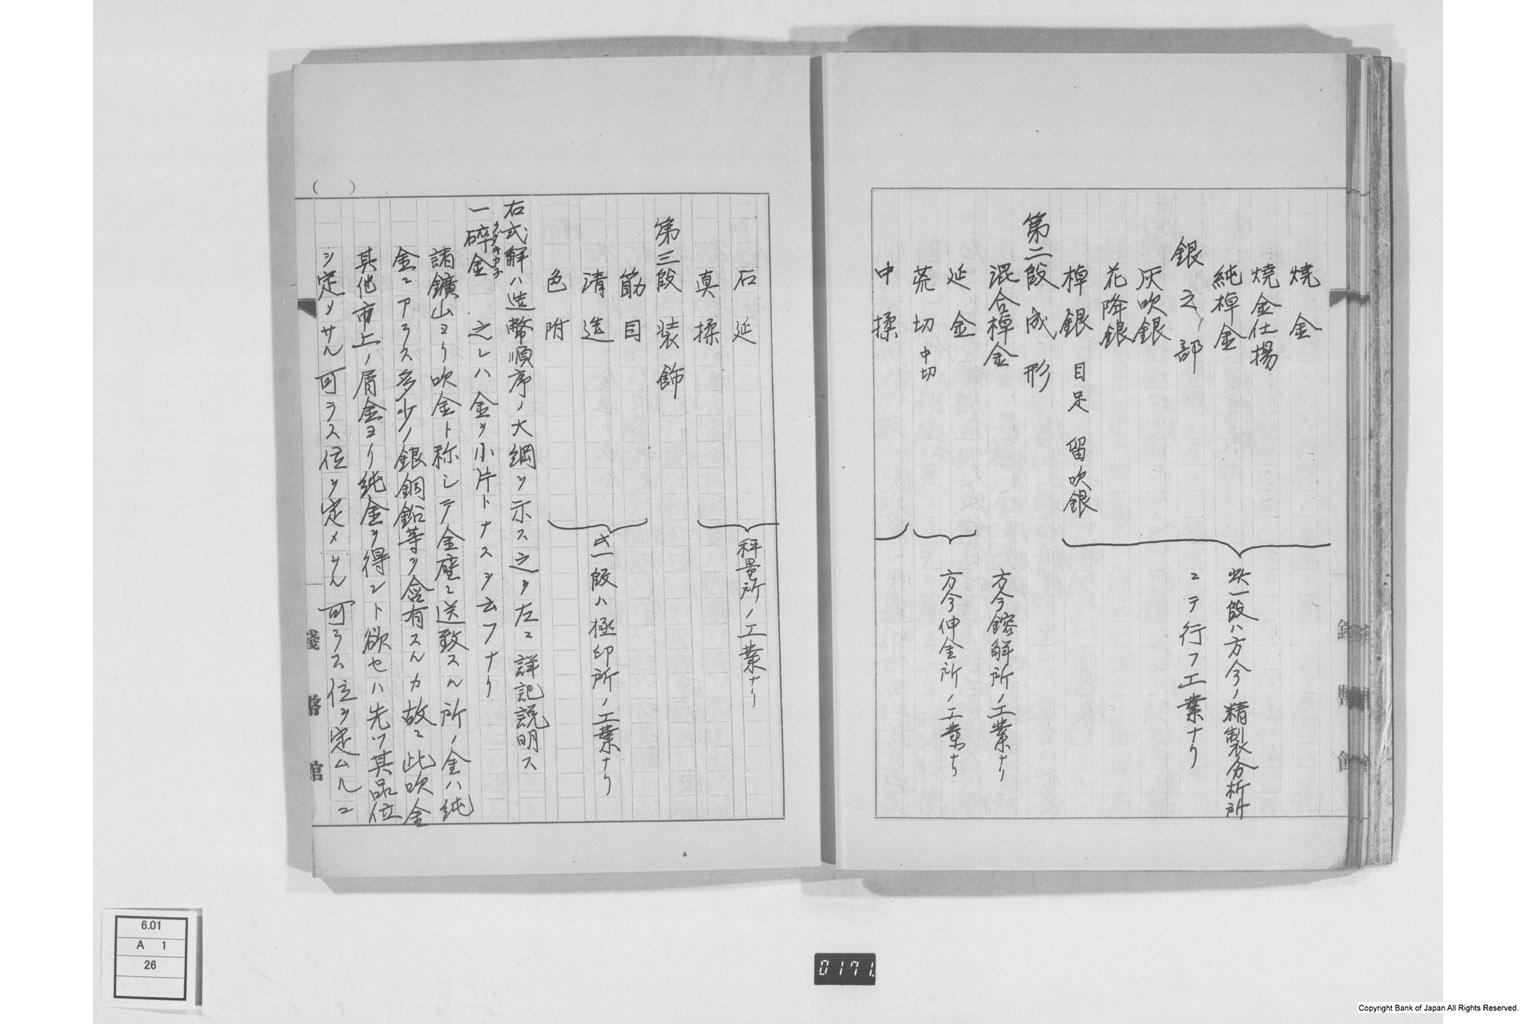 焼金
焼金仕揚
純棹金
銀之部
灰吹銀
花降銀
棹銀 目足 留吹銀
此一段ハ方今ノ精製分析所
ニテ行フ工業ナリ
第二段 成形
混合棹金
方今鎔解所ノ工業ナリ
延金
荒切 中切
方今伸金所ノ工業ナリ
中揉
石延
真揉
秤量所ノ工業ナリ
第三段 装飾
筋目
清造
色附
此一段ハ極印所ノ工業ナリ
右式解ハ造幣順序ノ大綱ヲ示ス之ヲ左ニ詳記説明ス
一砕金 之レハ金ヲ小片トナスヲ云フナリ
諸鑛山ヨリ吹金ト称シテ金座ニ送致スル所ノ金ハ純
金ニアラス多少ノ銀銅鉛等ヲ含有スルカ故ニ此吹金
其他市上ノ屑金ヨリ純金ヲ得ント欲セハ先ツ其品位
ヲ定メサル可ラス位ヲ定メサル可ラス位ヲ定ムルニ
( )
錢幣館
錢幣館
6.01
A 1
26
0171.
Copyright Bank of Japan All Rights Reserved.